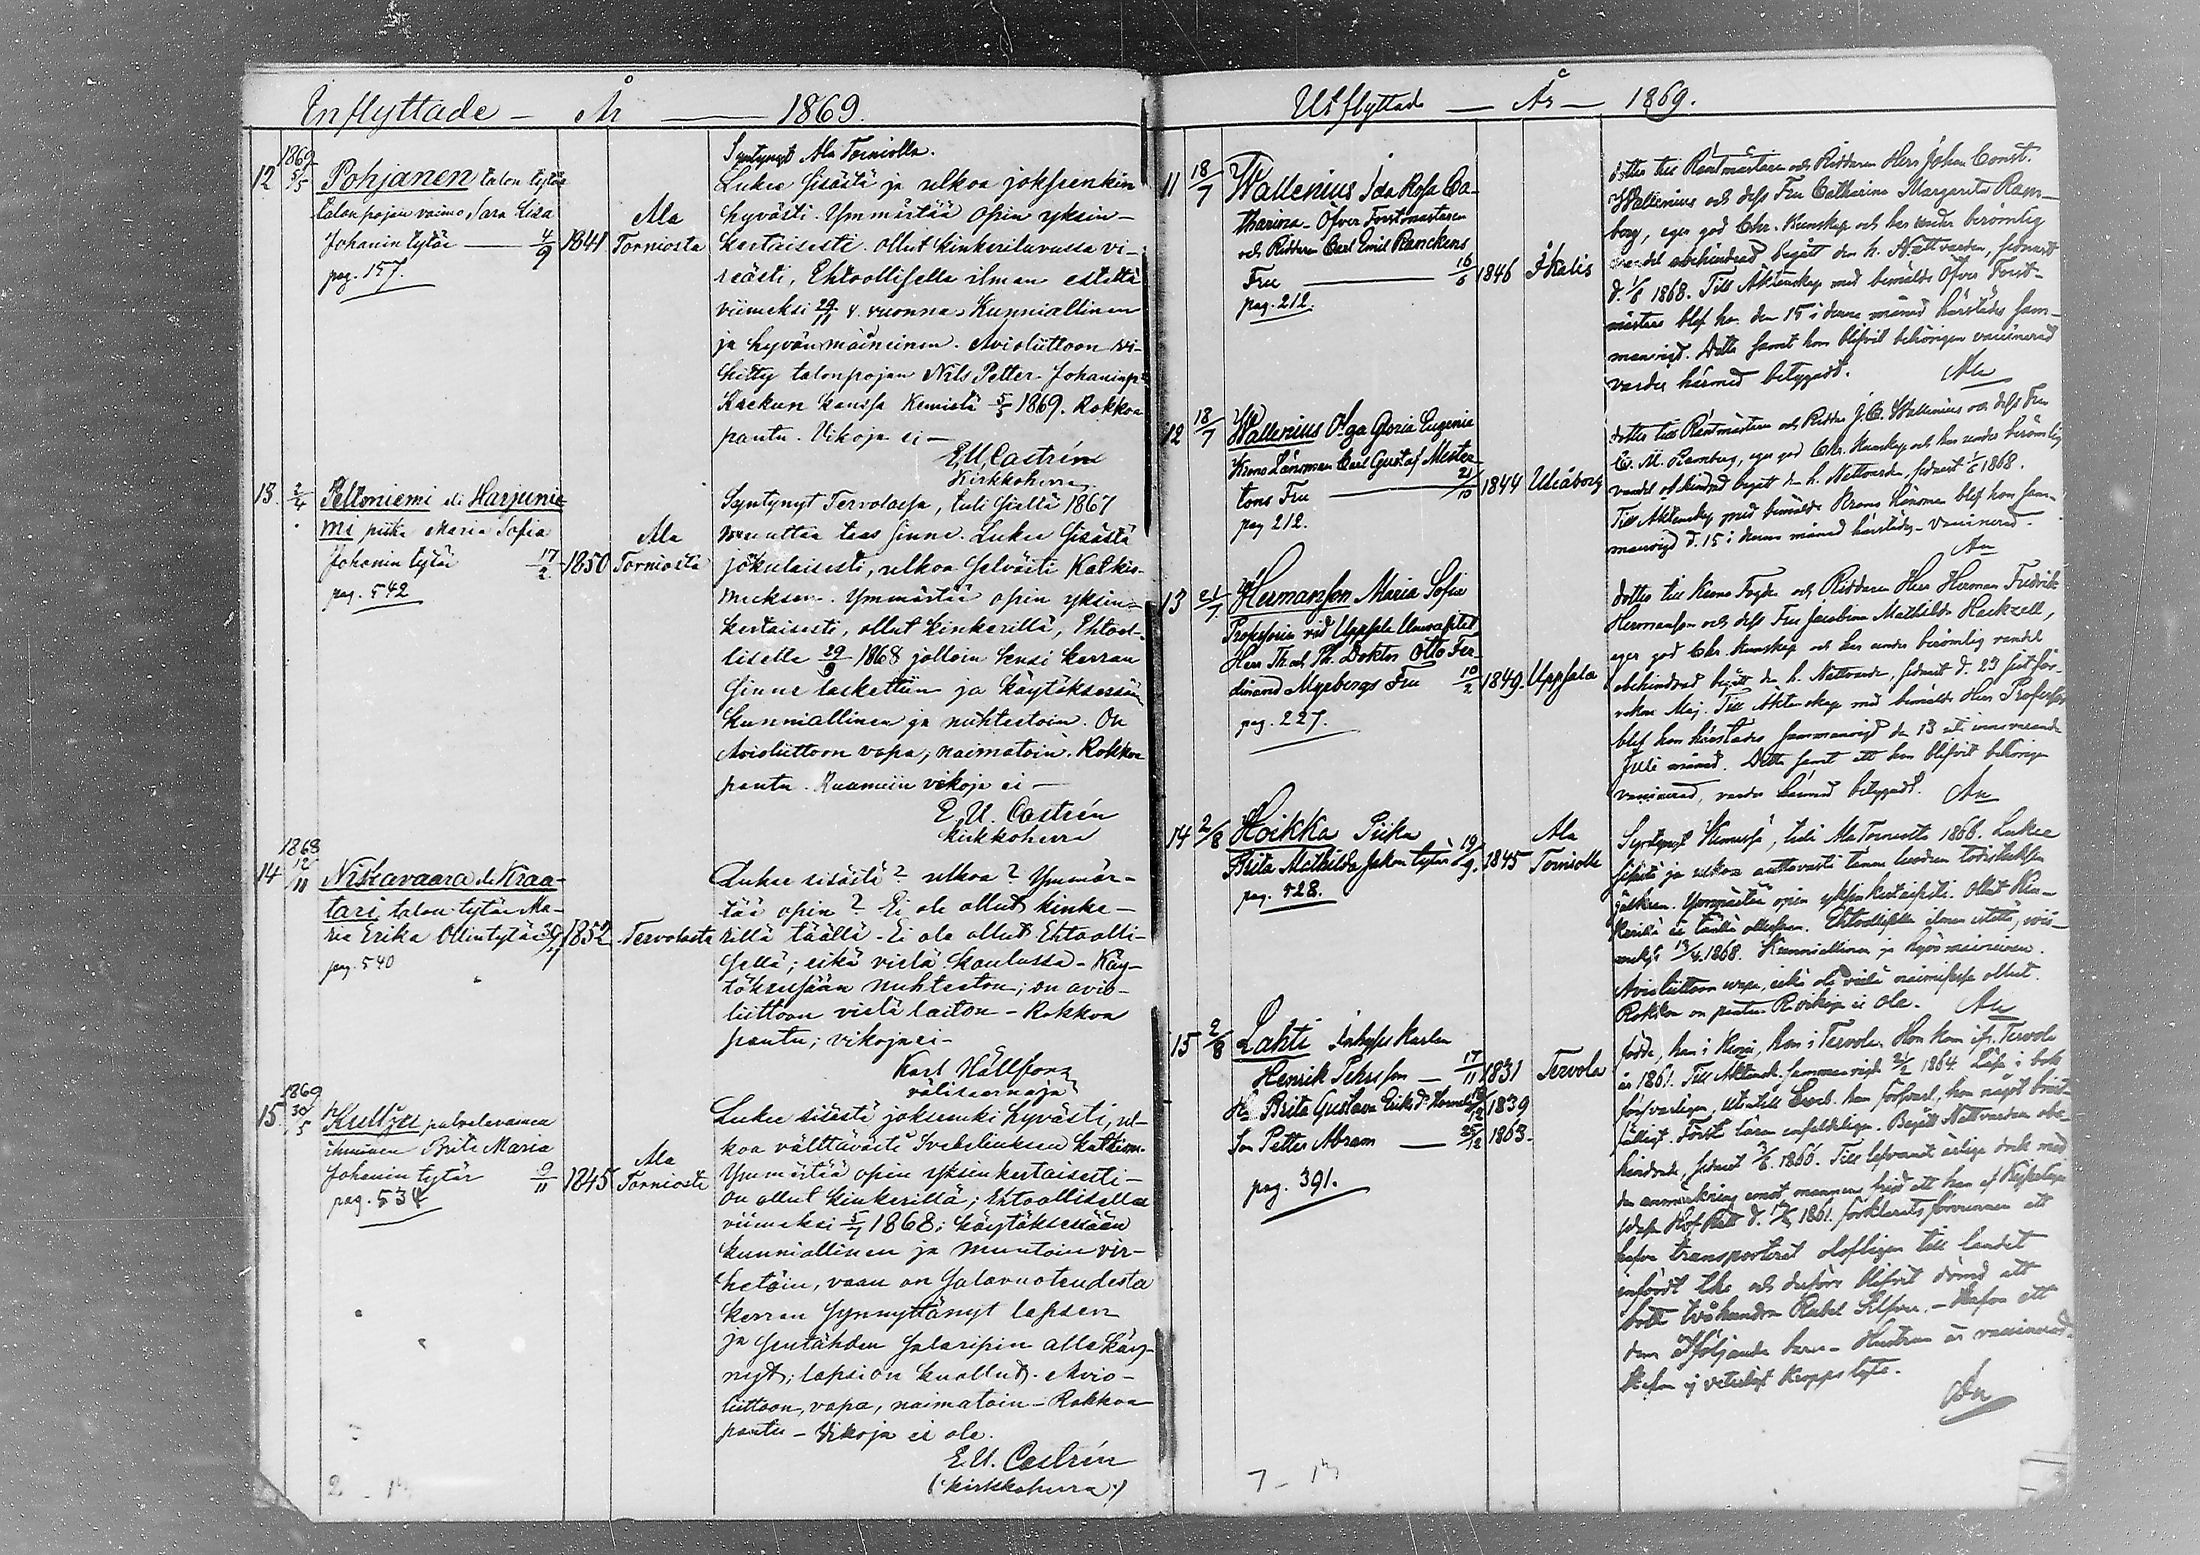 Inflyttade — År — 1869.
12 1869 5/5 Pohjanen talon tytär
talonpojan vaimo Sara Lisa
Johanin tytär — 4/9 1841 Ala Torniosta
pag. 157.
Syntynyt Ala Torniolla.
Lukee sisästä ja ulkoa joksenkin
hyvästi. Ymmärtää opin yksin-
kertaisesti. ollut kinkeriluvussa vi-
reästi, Ehtoollisella ilman estettä
viimeksi 29/11 v. vuonna. Kunniallinen
ja hyvän mäineinen. Avioliittoon wi-
hitty talonpojan Nils Petter Johaninp.
Kaekun kanssa Kemistä 5/5 1869. Rokkoa
pantu. Vikoja ei —
E. U. Castrén
Kirkkoherra
13. 2/4 Peltoniemi eli Harjunie
mi piika Maria Sofia
Johanin tytär 17/2 1850 Ala Torniosta
pag. 542
Syntynyt Tervolassa, tuli sieltä 1867
muuttaa taas sinne. Lukee sisästä
jokulaisesti, ulkoa selvästi Katkis-
muksen. Ymmärtää opin yksin-
kertaisesti, ollut kinkerillä, Ehtool-
lisella 29/9 1868 jolloin ensi kerran
sinne laskettiin ja käytöksessään
kunniallinen ja nuhtetoin. On
Avioliittoon vapa, naimatoin. Rokkoa
pantu. Ruumiin vikoja ei —
E. U. Castrén
Kirkkoherra
14 1868 12/11 Niskavaara eli Kraa-
tari talon tytär Ma-
ria Erika Ollin tytär 1852 Tervolasta
pag. 540
Lukee sisästä? ulkoa? Ymmär-
tää opin? Ei ole ollut kinke-
rillä täällä. Ei ole ollut Ehtoolli-
sella; eikä vielä koulussa — Käy-
töksessään nuhteeton; on avio-
liittoon vielä laiton — Rokkoa
pantu; vikoja ei —
Karl Hällfors
välisaarnaaja
15. 1869 30/5 palvelevainen
ihminen Brita Maria
Johanin tytär 9/11 1845 Ala Torniosta
pag. 534
Lukee sisästä joksenki hyvästi, ul-
koa välttävästi Svebeliuksen katkism.
Ymmärtää opin yksinkertaisesti —
on ollut kinkerillä; Ehtoollisella
viimeksi 5/7 1868; käytöksessään
kunniallinen ja muutoin vir-
hetöin, vaan on salavuoteudesta
kerran synnyttänyt lapsen
ja sentähden salaripin alla käy-
nyt; lapsi on kuollut. Avio-
liittoon vapa, naimatoin — Rokkoa
pantu — Vikoja ei ole.
E. U. Castrén
(kirkkoherra)
Utflyttade — År — 1869.
11 18/7 Wallenius Ida Rosa Ca-
tharina — Öfver Forstmästaren
och Riddaren Carl Emil Ranckens
Fru — 16/6 1846 Ikalis
pag. 212.
dotter till Räntmästaren och Riddaren Herr Johan Const.
Wallenius och dess Fru Catharina Margareta Ram-
berg, eger god Chr. Kunskap och har under berömlig
vandel obehindrad begått den h. Nattvarden, sednast
d. 1/6 1868. Till Äktenskap med bemälde Öfver Forst-
mästare blef hon den 15 i denna månad härstädes sam-
manvigd. Detta samt hon blifvit behörigen vaccinerad
varder härmed betygadt.
12 18/7 Wallenius Olga Gloria Eugenia
Krono Länsman Carl Gustaf Mester-
tons Fru — 21/10 1844 Uleåborg
pag 212.
dotter till Räntmästaren och Riddar J. C. Wallenius och dess Fru
C. M. Ramberg, eger god Chr. Kunskap och har under berömlig
vandel obehindrad begått den h. Nattvarden, sednast 1/6 1868.
Till Äktenskap med bemälde Krono Länsman blef hon sam-
manvigd d. 15 i denna månad härstädes — Vaccinerad.
13 21/7 Hermanson Maria Sofia
Professorn vid Uppsala Universitet,
Herr Th. och Ph. Doktor Otto Fer-
dinand Myrbergs Fru 10/2 1849. Uppsala
pag. 227.
dotter till Krono Fogden och Riddaren Herr Herman Fredrik
Hermanson och dess Fru Jacobina Mathilda Hackzell,
eger god Chr. kunskap och har under berömlig vandel
obehindrad begått den h. Nattvarden, sednast d. 23 sist för-
vekne Maj. Till Äktenskap med bemälde Herr Professor
blef hon härstädes sammanvigd den 13 uti innevarande
Juli månad. Detta samt att hon blifvit behörigen
vaccinerad, varder härmed betygadt.
14 2/8 Hoikka Piika
Brita Mathilda Jakon tytär 19/9 1845 Ala Torniolle
pag. 528.
Syntynyt Kemissä, tuli Ala Torniosta 1866. Lukee
sisästä ja ulkoa
Ymmärtää opin yksinkertaisesti. Ollut Kin-
kerilä Ehtoollisella ilman estettä, vii-
meksi 1868. Kunniallinen ja hyvä maineinen.
Avioliittoon vapa, eikä ole vielä naimisissa ollut.
Rokkoa on pantu. R. vikoja ei ole.
15 2/8 Lahti Inhyses karlen
Henrik Pehrsson — 17/11 1831 Tervola
Hu Brita Gustava Eriks d. 1839
Son Petter Abram — 25/12 1863.
pag. 391.
födde, han i Kemi, hon i Tervola. Hon kom ifr. Tervola
år 1861. Till Äktensk. sammanvigde 1864. Läsa i bok
försvarligen, utantill
Förstå läran enfaldeligen. Begått Nattvarden obe-
hindrade, sednast 1866. Till lefvernet ärlige dock med
den anmärkning emot mannen att han af Kejserliga
Wasa Hof Rätt d. 1861 förklarats förvunnen att
hafva transporterat olofligen till landet
infördt och derföre blifvit dömd att
böta tvåhundra Rubel Silfver. — Hafva ett
dem åtföljande barn — Hustrun är vaccinerad.
Hafva ej veterligt kroppslyte.